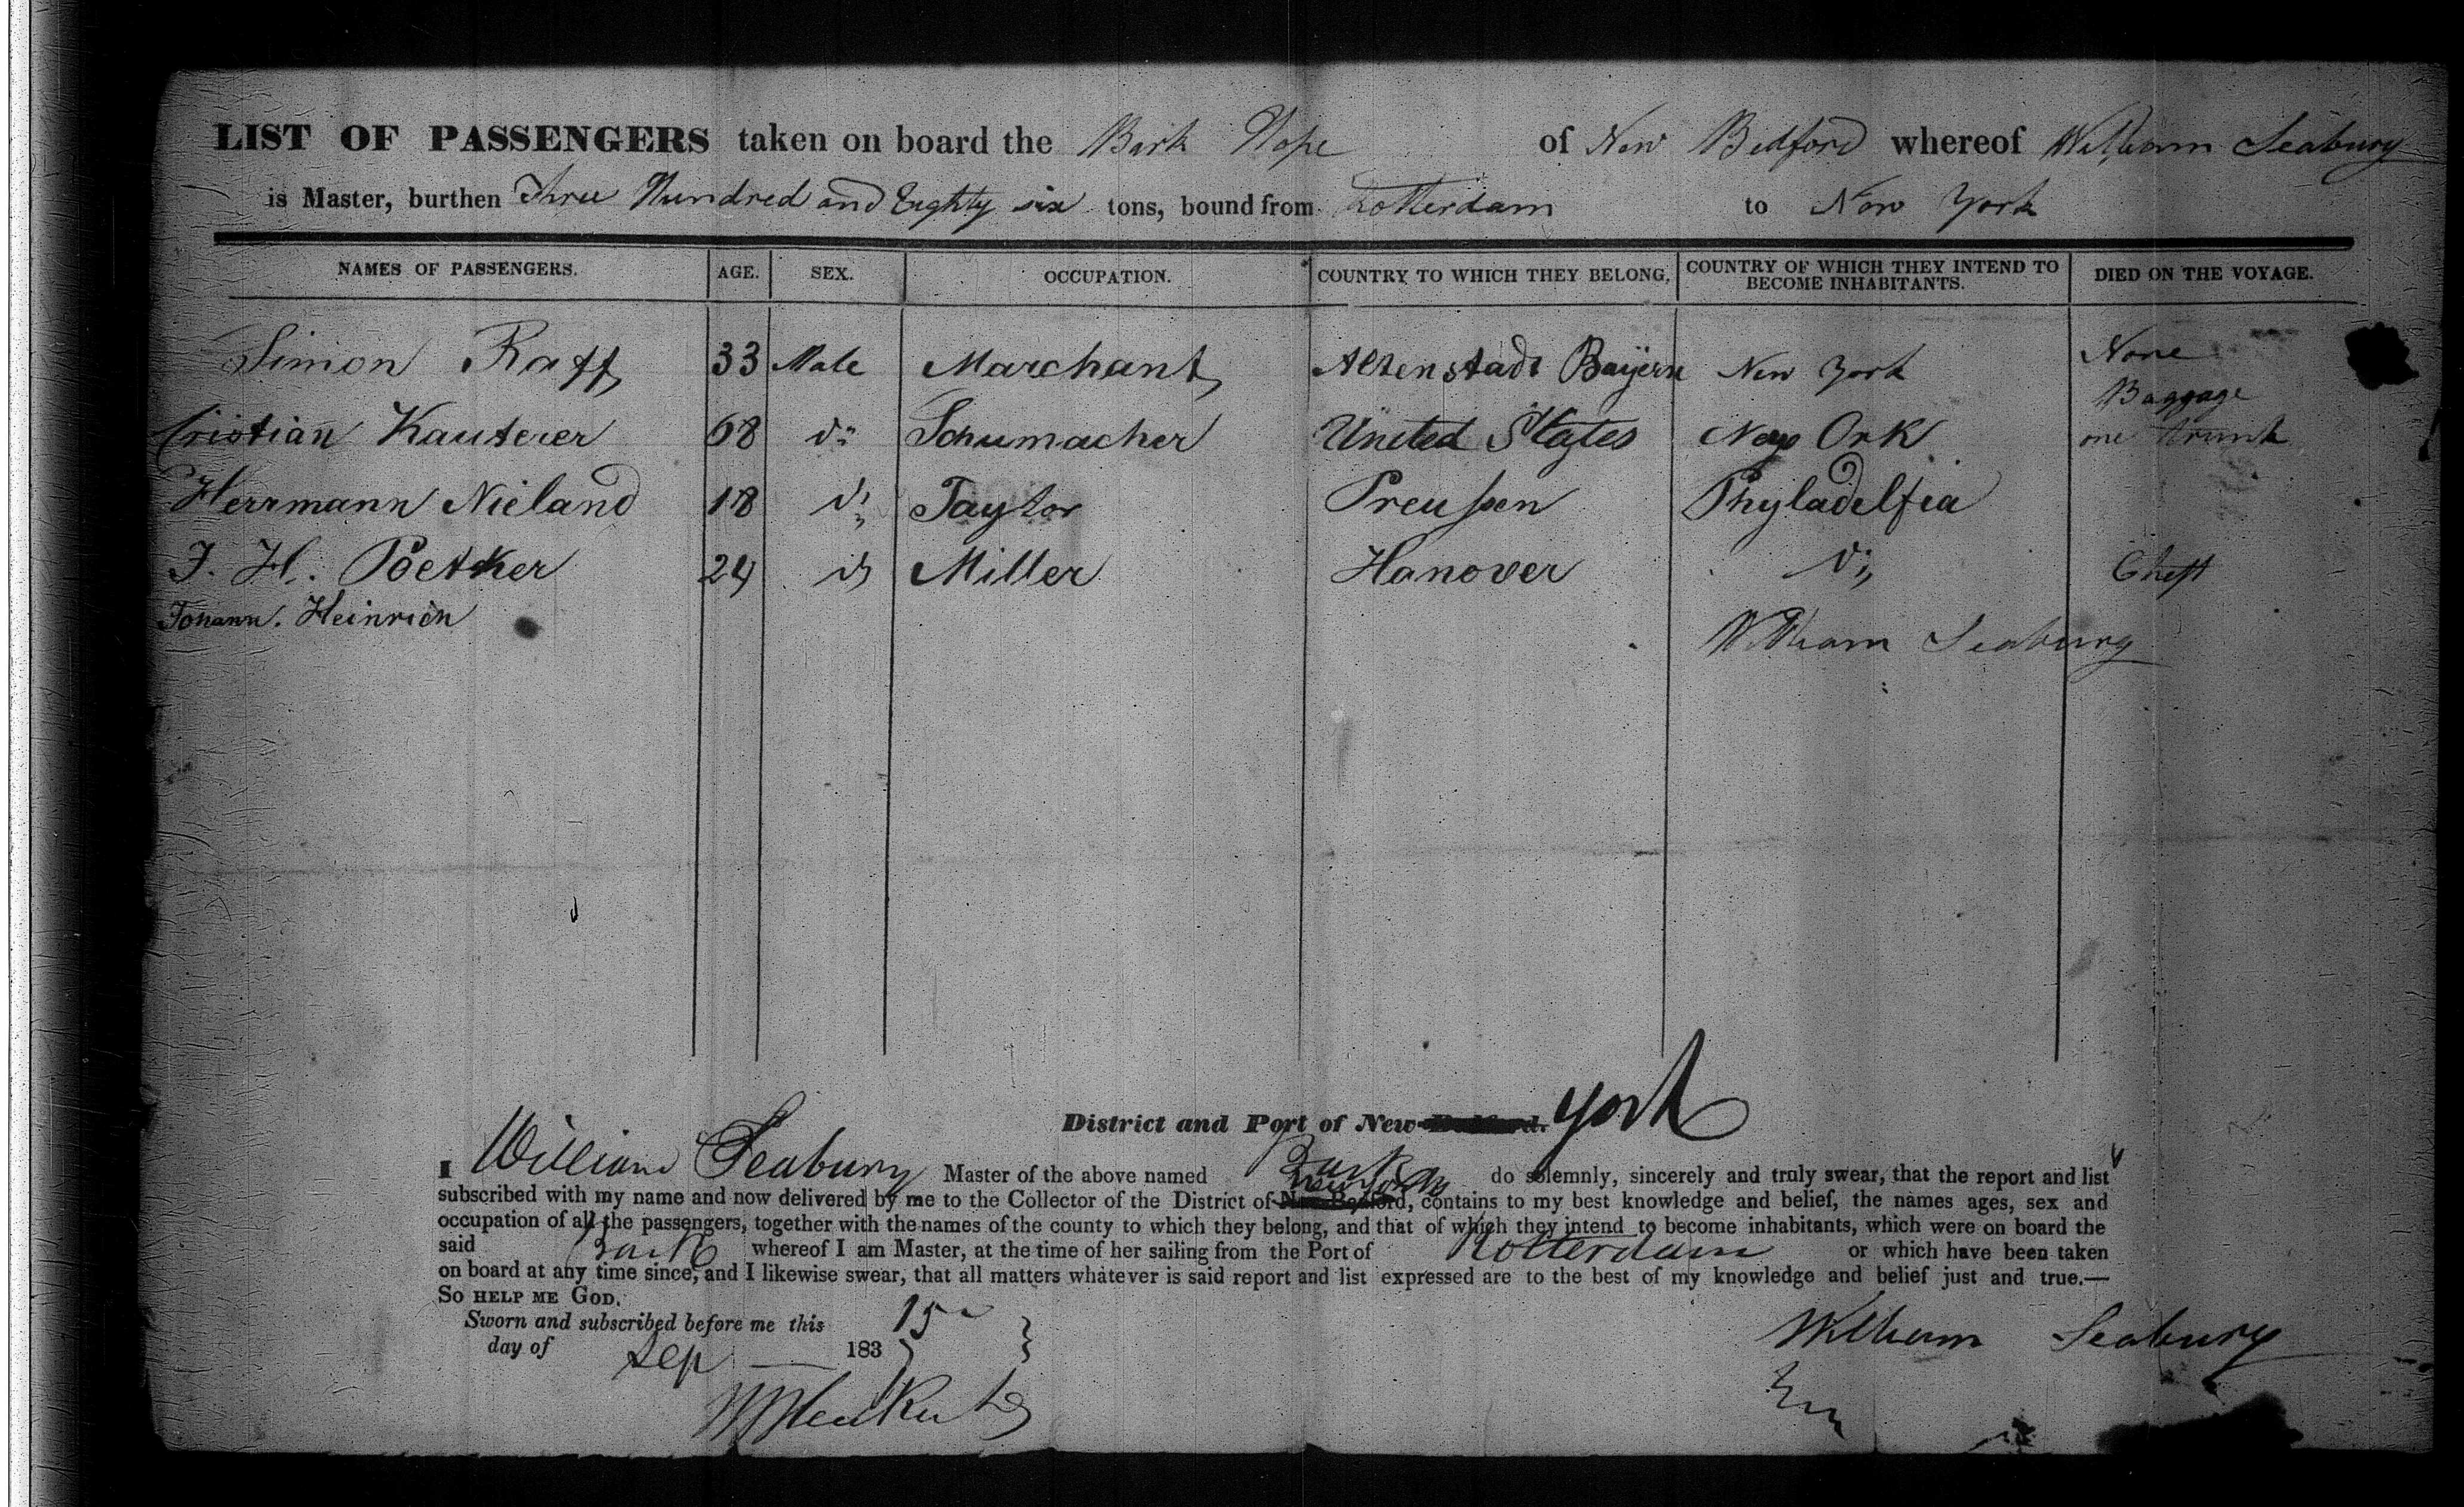 LIST OF PASSENGERS taken on board the Bark Hope of New Bedford whereof William Seabury
is Master, burthen Three Hundred and Eighty six tons, bound from Rotterdam to New York
NAMES OF PASSENGERS. AGE. SEX. OCCUPATION. COUNTRY TO WHICH THEY BELONG, COUNTRY OF WHICH THEY INTEND TO BECOME INHABITANTS. DIED ON THE VOYAGE.
Simon Raff 33 Male Marchant Altenstadt Bayern New York None
Baggage
Cristian Kauterer 68 do Schumacher United States New Ork one trunk
Herrmann Nieland 18 do Taylor Preußen Phyladelfia
J. H. Poetker 24 do Miller Hanover do Chest
Johann. Heinrich
William Seabury
District and Port of New York
I William Seabury Master of the above named Bark do solemnly, sincerely and truly swear, that the report and list
subscribed with my name and now delivered by me to the Collector of the District of New York, contains to my best knowledge and belief, the names ages, sex and
occupation of all the passengers, together with the names of the county to which they belong, and that of which they intend to become inhabitants, which were on board the
said Bark whereof I am Master, at the time of her sailing from the Port of Rotterdam or which have been taken
on board at any time since, and I likewise swear, that all matters whatever is said report and list expressed are to the best of my knowledge and belief just and true.—
SO HELP ME GOD.
Sworn and subscribed before me this 15
day of Sep 183
William Seabury